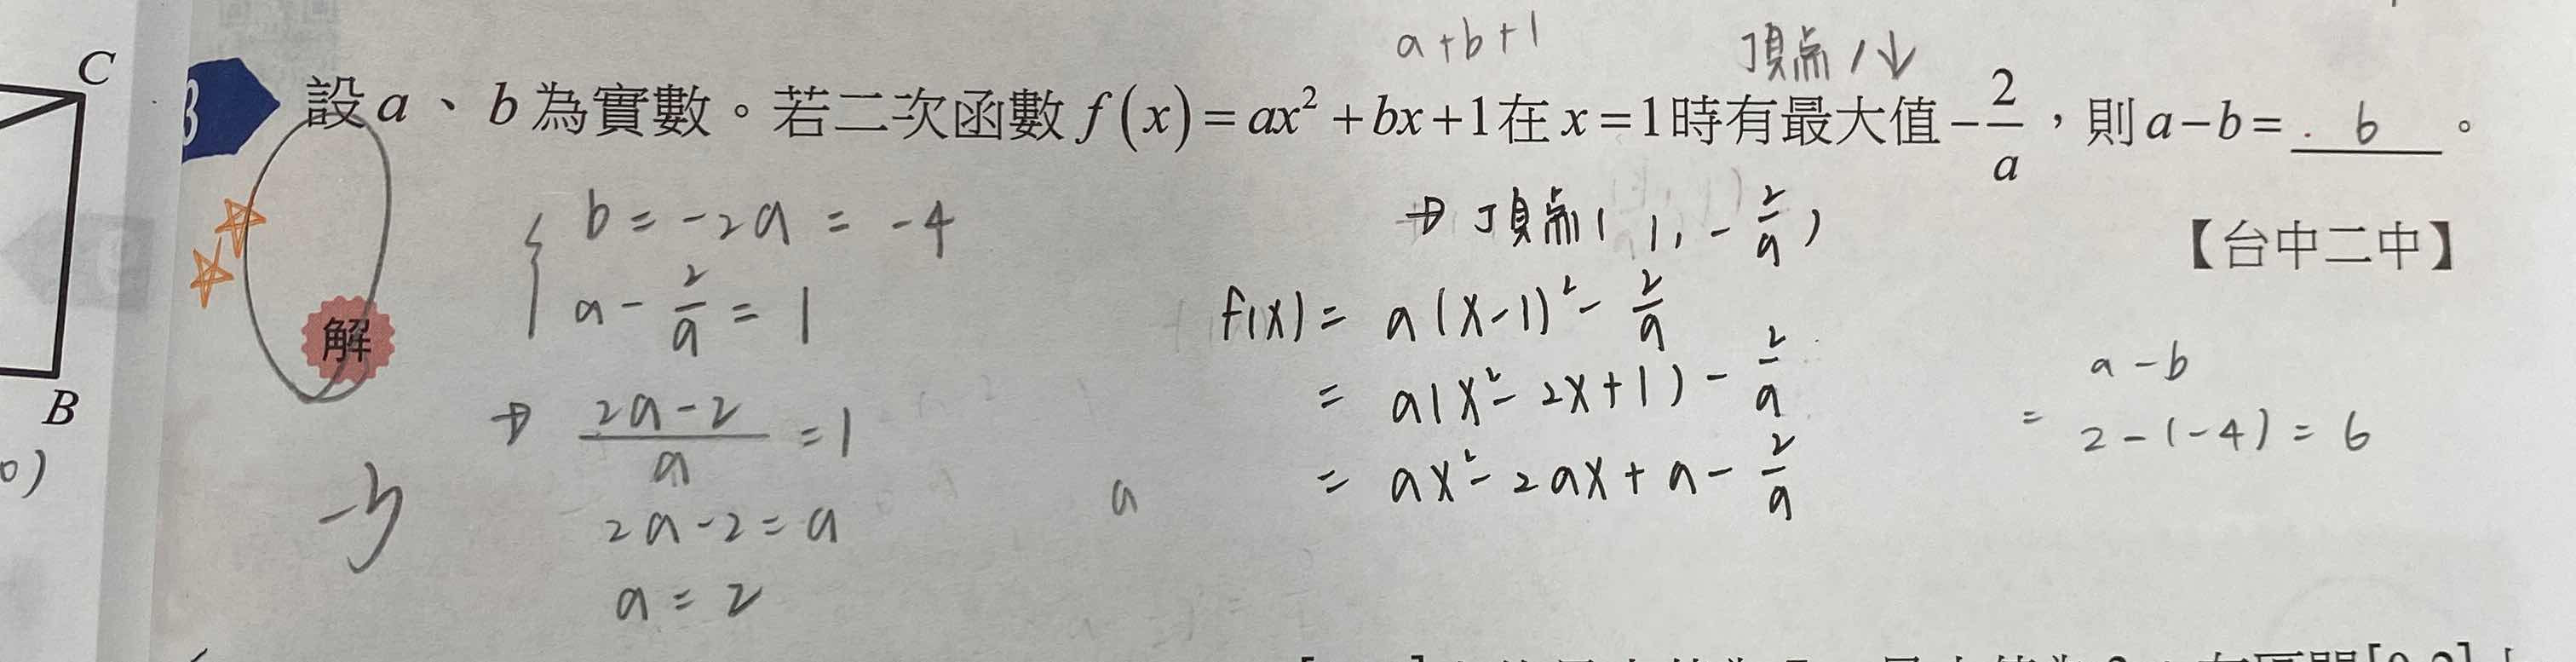 C
B
0)
3 設a、b為實數。若二次函數f(x)=ax²+bx+1在x=1時有最大值-2/a,則a-b= 6 。
a+b+1
頂点 1↓
【台中二中】
解
b = -2a = -4
a - 2/a = 1
⇒ (2a-2)/a = 1
2a-2=a
a = 2
a
⇒ 頂点(1, -2/a)
f(x) = a(x-1)² - 2/a
= a(x²-2x+1) - 2/a
= ax²-2ax+a-2/a
a-b
= 2-(-4) = 6